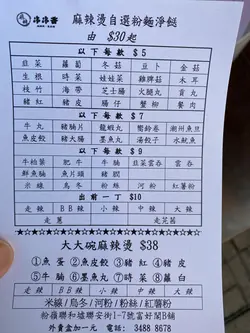 串串香
麻辣燙自選粉麵淨餸
由 $30起
以下每款 $5
韭菜 蘿蔔 冬菇 豆卜 金菇
生根 時菜 娃娃菜 雞脾菇 木耳
枝竹 海帶 芝士腸 火腿丸 貢丸
豬紅 豬皮 腸仔 芬丸 腐皮
以下每款 $7
牛丸 豬腩片 龍蝦丸 蟹鈴卷 潮州魚旦
魚皮餃 豬大腸 墨魚丸 湯餃角 水魷魚
以下每款 $9
牛柏葉 肥牛 牛腩 韭菜雲吞 雲吞
鮮魚腩 魚片頭 豬膶
米線 烏冬 粉絲 河粉 紅薯粉
出前一丁 $10
走辣 BB辣 小辣 中辣 大辣
走蔥 走芫茜
大大碗麻辣燙 $38
①魚蛋 ②魚皮餃 ③豬紅 ④豬皮
⑤牛腩 ⑥墨魚丸 ⑦時菜 ⑧蘿白
走辣 BB辣 小辣 中辣 大辣
米線/烏冬/河粉/粉絲/紅薯粉
粉嶺聯和墟聯安街1-7號富好閣B舖
外賣盒加一元 電話: 3488 8678